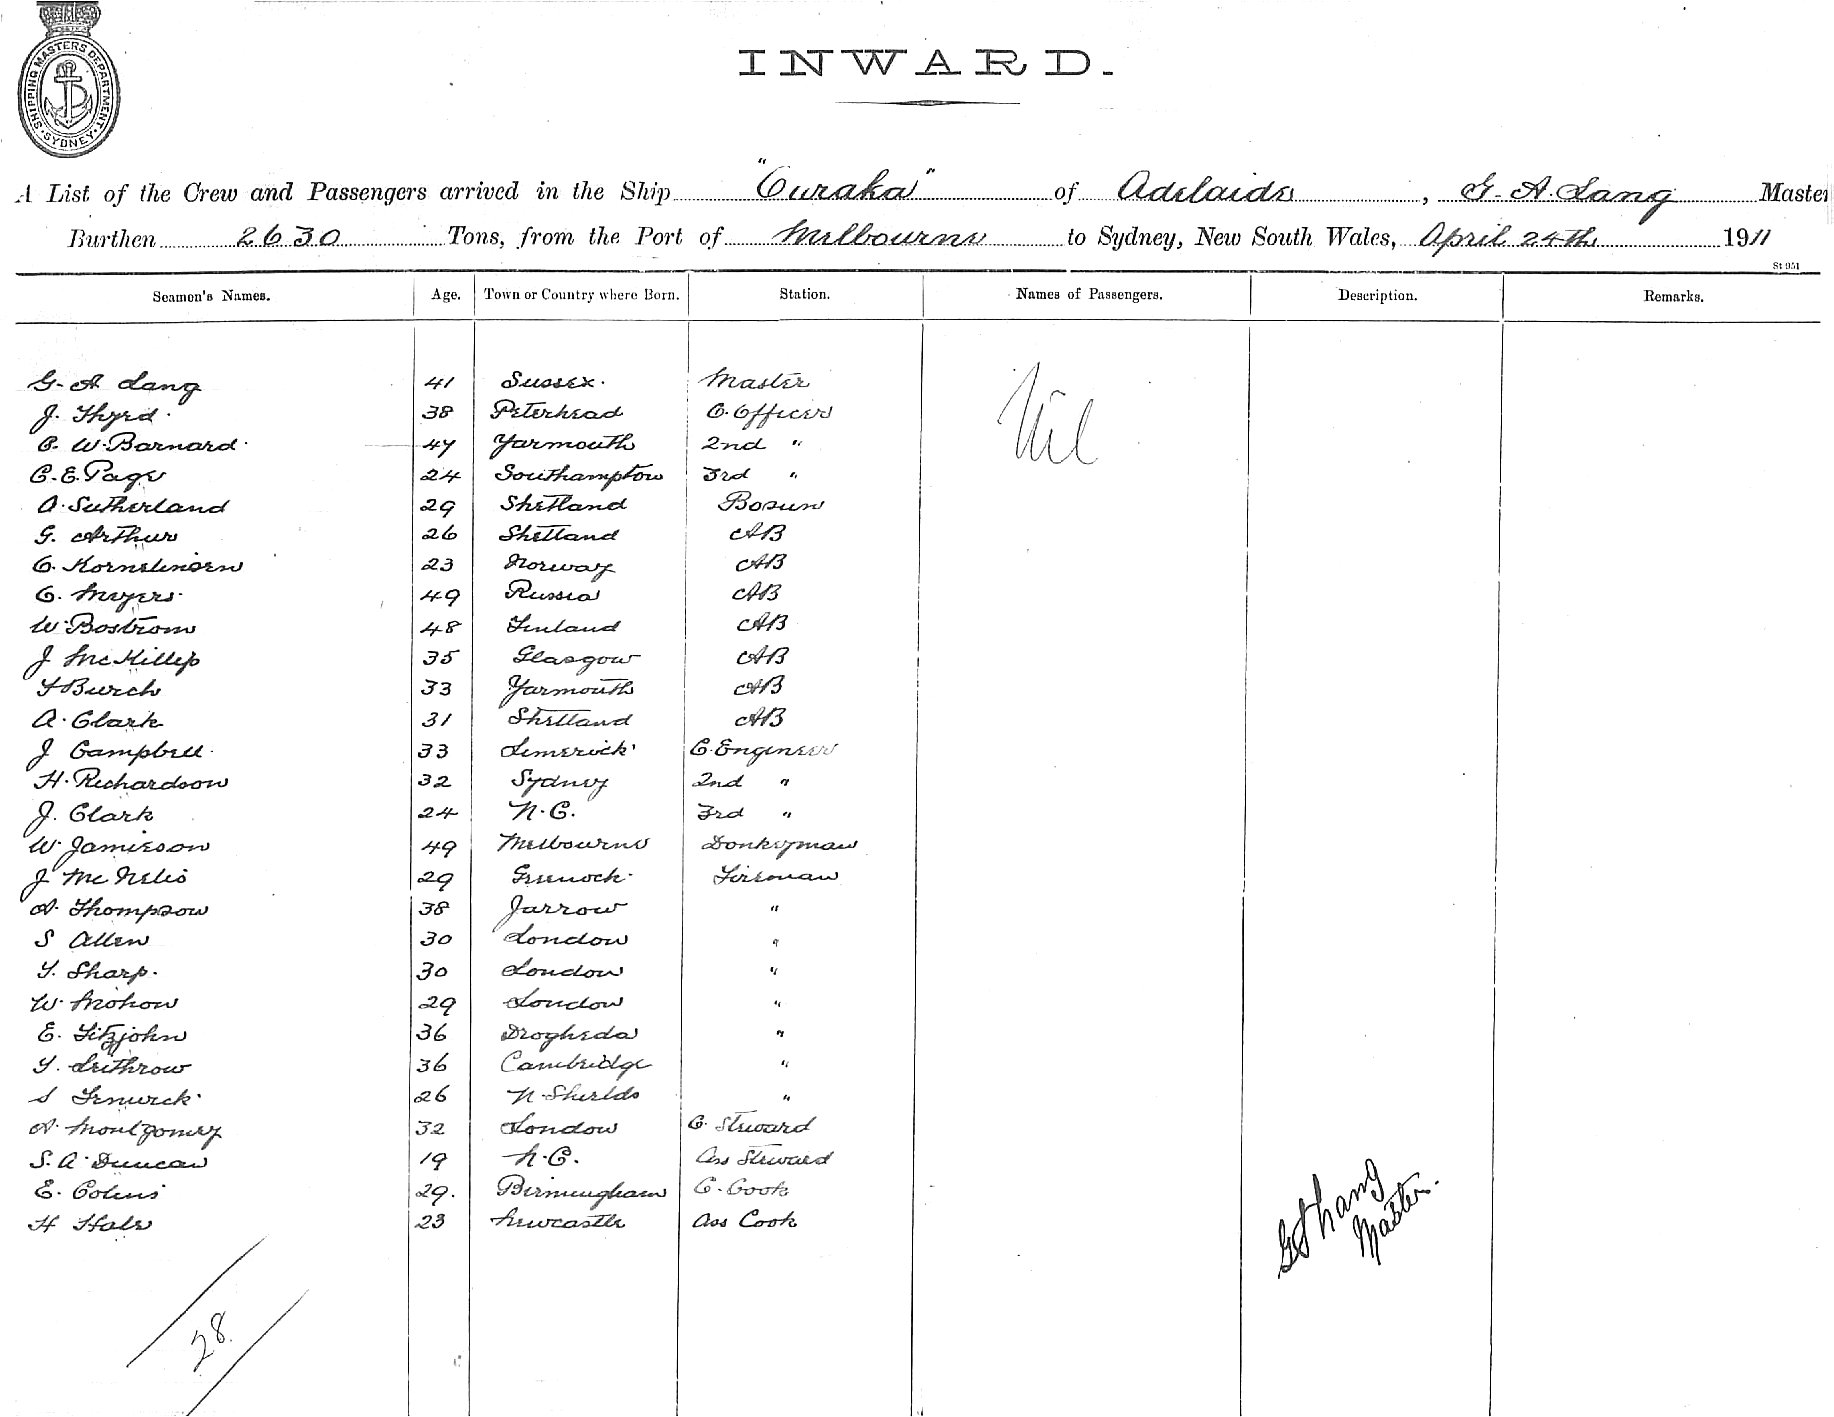 SHIPPING MASTERS DEPARTMENT
SYDNEY
INWARD.
A List of the Crew and Passengers arrived in the Ship "Euraka" of Adelaide, G. A. Lang Master
Burthen 2630 Tons, from the Port of Melbourne to Sydney, New South Wales, April 24th 1911
St 951
Seamen's Names. Age. Town or Country where Born. Station. Names of Passengers. Description. Remarks.
G. A Lang 41 Sussex. Master Nil
J. Thyrd. 38 Peterhead C. Officer
C. W. Barnard. 47 Yarmouth 2nd "
C. E. Page 24 Southampton 3rd "
A. Sutherland 29 Shetland Bosun
G. Arthur 26 Shetland AB
C. Kornelinsen 23 Norway AB
C. Meyers. 49 Russia AB
W. Bostrom 48 Finland AB
J McKillip 35 Glasgow AB
F Burch 33 Yarmouth AB
A. Clark 31 Shetland AB
J Campbell. 33 Limerick C. Engineer
H. Richardson 32 Sydney 2nd "
J. Clark 24 N. C. 3rd "
W. Jamieson 49 Melbourne Donkeyman
J McNelis 29 Greenock. Fireman
A. Thompson 38 Jarrow "
S Allen 30 London "
T. Sharp. 30 London "
W. Mohon 29 London "
E. Fitzjohn 36 Drogheda "
T. Lethrow 36 Cambridge "
S Fenwick. 26 N. Shields "
A. Montgomery 32 London C. Steward
S. A. Duncan 19 N. C. Ass Steward
E. Colens 29. Birmingham C. Cook
H Hale 23 Newcastle Ass Cook
G A Lang
Master.
28.